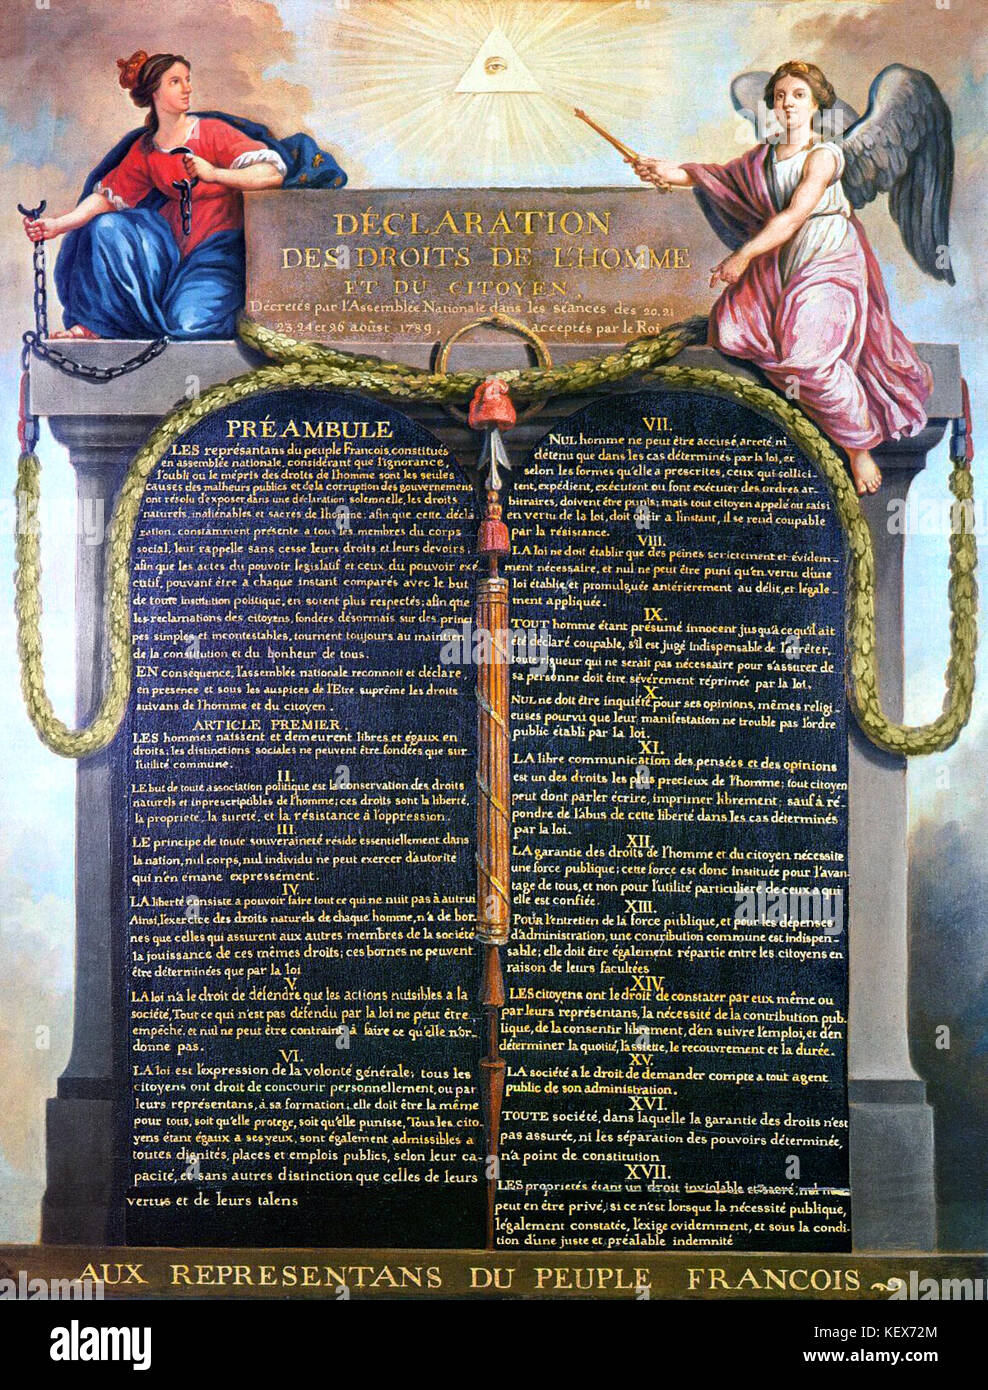 DÉCLARATION
DES DROITS DE L'HOMME
ET DU CITOYEN,
Décretés par l'Assemblée Nationale dans les séances des 20.21
23.24 et 26 aoùst 1789, acceptés par le Roi
PRÉAMBULE
LES représantans du peuple Francois, constitués
en assemblée nationale, considérant que l'ignorance,
l'oubli ou le mépris des droits de l'homme sont les seules
causes des malheurs publics et de la corruption des gouvernemens
ont résolu d'exposer, dans une déclaration solemnelle, les droits
naturels, inaliénables et sacrés de l'homme; afin que cette décla
ration, constamment présente a tous les membres du corps
social, leur rappelle sans cesse leurs droits et leurs devoirs;
afin que les actes du pouvoir legislatif et ceux du pouvoir exé
cutif, pouvant être a chaque instant comparés avec le but
de toute institution politique, en soient plus respectés; afin que
les reclamations des citoyens, fondées désormais sur des princi
pes simples et incontestables, tournent toujours au maintien
de la constitution et du bonheur de tous.
EN conséquence, l'assemblée nationale reconnoit et déclare
en presence et sous les auspices de l'Etre suprême les droits
suivans de l'homme et du citoyen.
ARTICLE PREMIER.
LES hommes naissent et demeurent libres et égaux en
droits; les distinctions sociales ne peuvent être fondées que sur
l'utilité commune.
II.
LE but de toute association politique est la conservation des droits
naturels et inprescriptibles de l'homme; ces droits sont la liberté,
la propriete, la sureté, et la résistance à l'oppression.
III.
LE principe de toute souveraineté réside essentiellement dans
la nation, nul corps, nul individu ne peut exercer d'autorité
qui n'en emane expressement.
IV.
LA liberté consiste a pouvoir faire tout ce qui ne nuit pas à autrui
Ainsi, l'exercice des droits naturels de chaque homme, n'a de bor
nes que celles qui assurent aux autres membres de la société
la jouissance de ces mêmes droits; ces bornes ne peuvent
être déterminées que par la loi
V.
LA loi n'a le droit de défendre que les actions nuisibles a la
société, Tout ce qui n'est pas défendu par la loi ne peut être
empêché, et nul ne peut être contraint à faire ce qu'elle n'or-
donne pas.
VI.
LA loi est l'expression de la volonté générale; tous les
citoyens ont droit de concourir personnellement, ou par
leurs représentans, à sa formation; elle doit être la même
pour tous, soit qu'elle protege, soit qu'elle punisse, Tous les cito-
yens étant égaux a ses yeux, sont également admissibles a
toutes dignités, places et emplois publics, selon leur ca-
pacité, et sans autres distinction que celles de leurs
vertus et de leurs talens
VII.
NUL homme ne peut être accusé, arreté, ni
détenu que dans les cas déterminés par la loi, et
selon les formes qu'elle a prescrites, ceux qui sollici-
tent, expédient, exécutent ou font exécuter des ordres ar-
bitraires, doivent être punis; mais tout citoyen appelé ou saisi
en vertu de la loi, doit obéir a l'instant, il se rend coupable
par la résistance.
VIII.
LA loi ne doit établir que des peines strictement et évidem-
ment nécessaire, et nul ne peut être puni qu'en vertu d'une
loi établie et promulguée antérierement au délit, et légale-
ment appliquée.
IX.
TOUT homme étant présumé innocent jusqu'a ce qu'il ait
été déclaré coupable, s'il est jugé indispensable de l'arrêter,
toute rigueur qui ne serait pas nécessaire pour s'assurer de
sa personne doit être sévèrement réprimée par la loi.
X.
NUL ne doit être inquiété pour ses opinions, mêmes religi-
euses pourvu que leur manifestation ne trouble pas l'ordre
public établi par la loi.
XI.
LA libre communication des pensées et des opinions
est un des droits les plus precieux de l'homme; tout citoyen
peut dont parler écrire, imprimer librement; sauf à ré-
pondre de l'abus de cette liberté dans les cas déterminés
par la loi.
XII.
LA garantie des droits de l'homme et du citoyen nécessite
une force publique; cette force est donc instituée pour l'avan-
tage de tous, et non pour l'utilité particuliere de ceux a qui
elle est confiée.
XIII.
POUR l'entretien de la force publique, et pour les dépenses
d'administration, une contribution commune est indispen-
sable; elle doit être également répartie entre les citoyens en
raison de leurs facultées
XIV.
LES citoyens ont le droit de constater par eux même ou
par leurs représentans, la nécessité de la contribution pub-
lique, de la consentir librement, d'en suivre l'emploi, et d'en
déterminer la quotité, l'assiette, le recouvrement et la durée.
XV.
LA société a le droit de demander compte a tout agent
public de son administration.
XVI.
TOUTE société, dans laquelle la garantie des droits n'est
pas assurée, ni les séparation des pouvoirs déterminée,
n'a point de constitution
XVII.
LES proprietés étans un droit inviolable et sacré, nul ne
peut en être privé, si ce n'est lorsque la nécessité publique,
légalement constatée, l'exige evidemment, et sous la condi
tion d'une juste et préalable indemnité
AUX REPRESENTANS DU PEUPLE FRANCOIS
alamy
Image ID: KEX72M
www.alamy.com